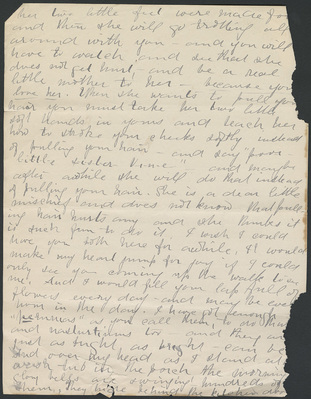 her two little feet were made for
and then she will go trotting all
around with you - and you will
have to watch and see that she
does not get hurt, and be a real
little mother to her - because you
love her. When she wants to pull your
hair you must take her two little
soft hands in yours and teach her
how to stroke your cheeks softly instead
of pulling your hair - and say "poor
little sister" and maybe
after awhile she will do that instead
of pulling your hair. She is a dear little
mischief and does not know that pulling
hair hurts any and she thinks it
is such fun to do it. I wish I could
have you both here for awhile. It would
make my heart jump for joy if I could
only see you coming up the walk to
me. And I would fill your lap full of
flowers every day - and may be even
more in the day. I have got
as you call them, to do that
and nasturtiums too - and they are
just as bright, as bright can be
and over my head as I stand at
work out in the porch the morning
glory bells are swinging hundreds of
them, they are behind the kitchen door